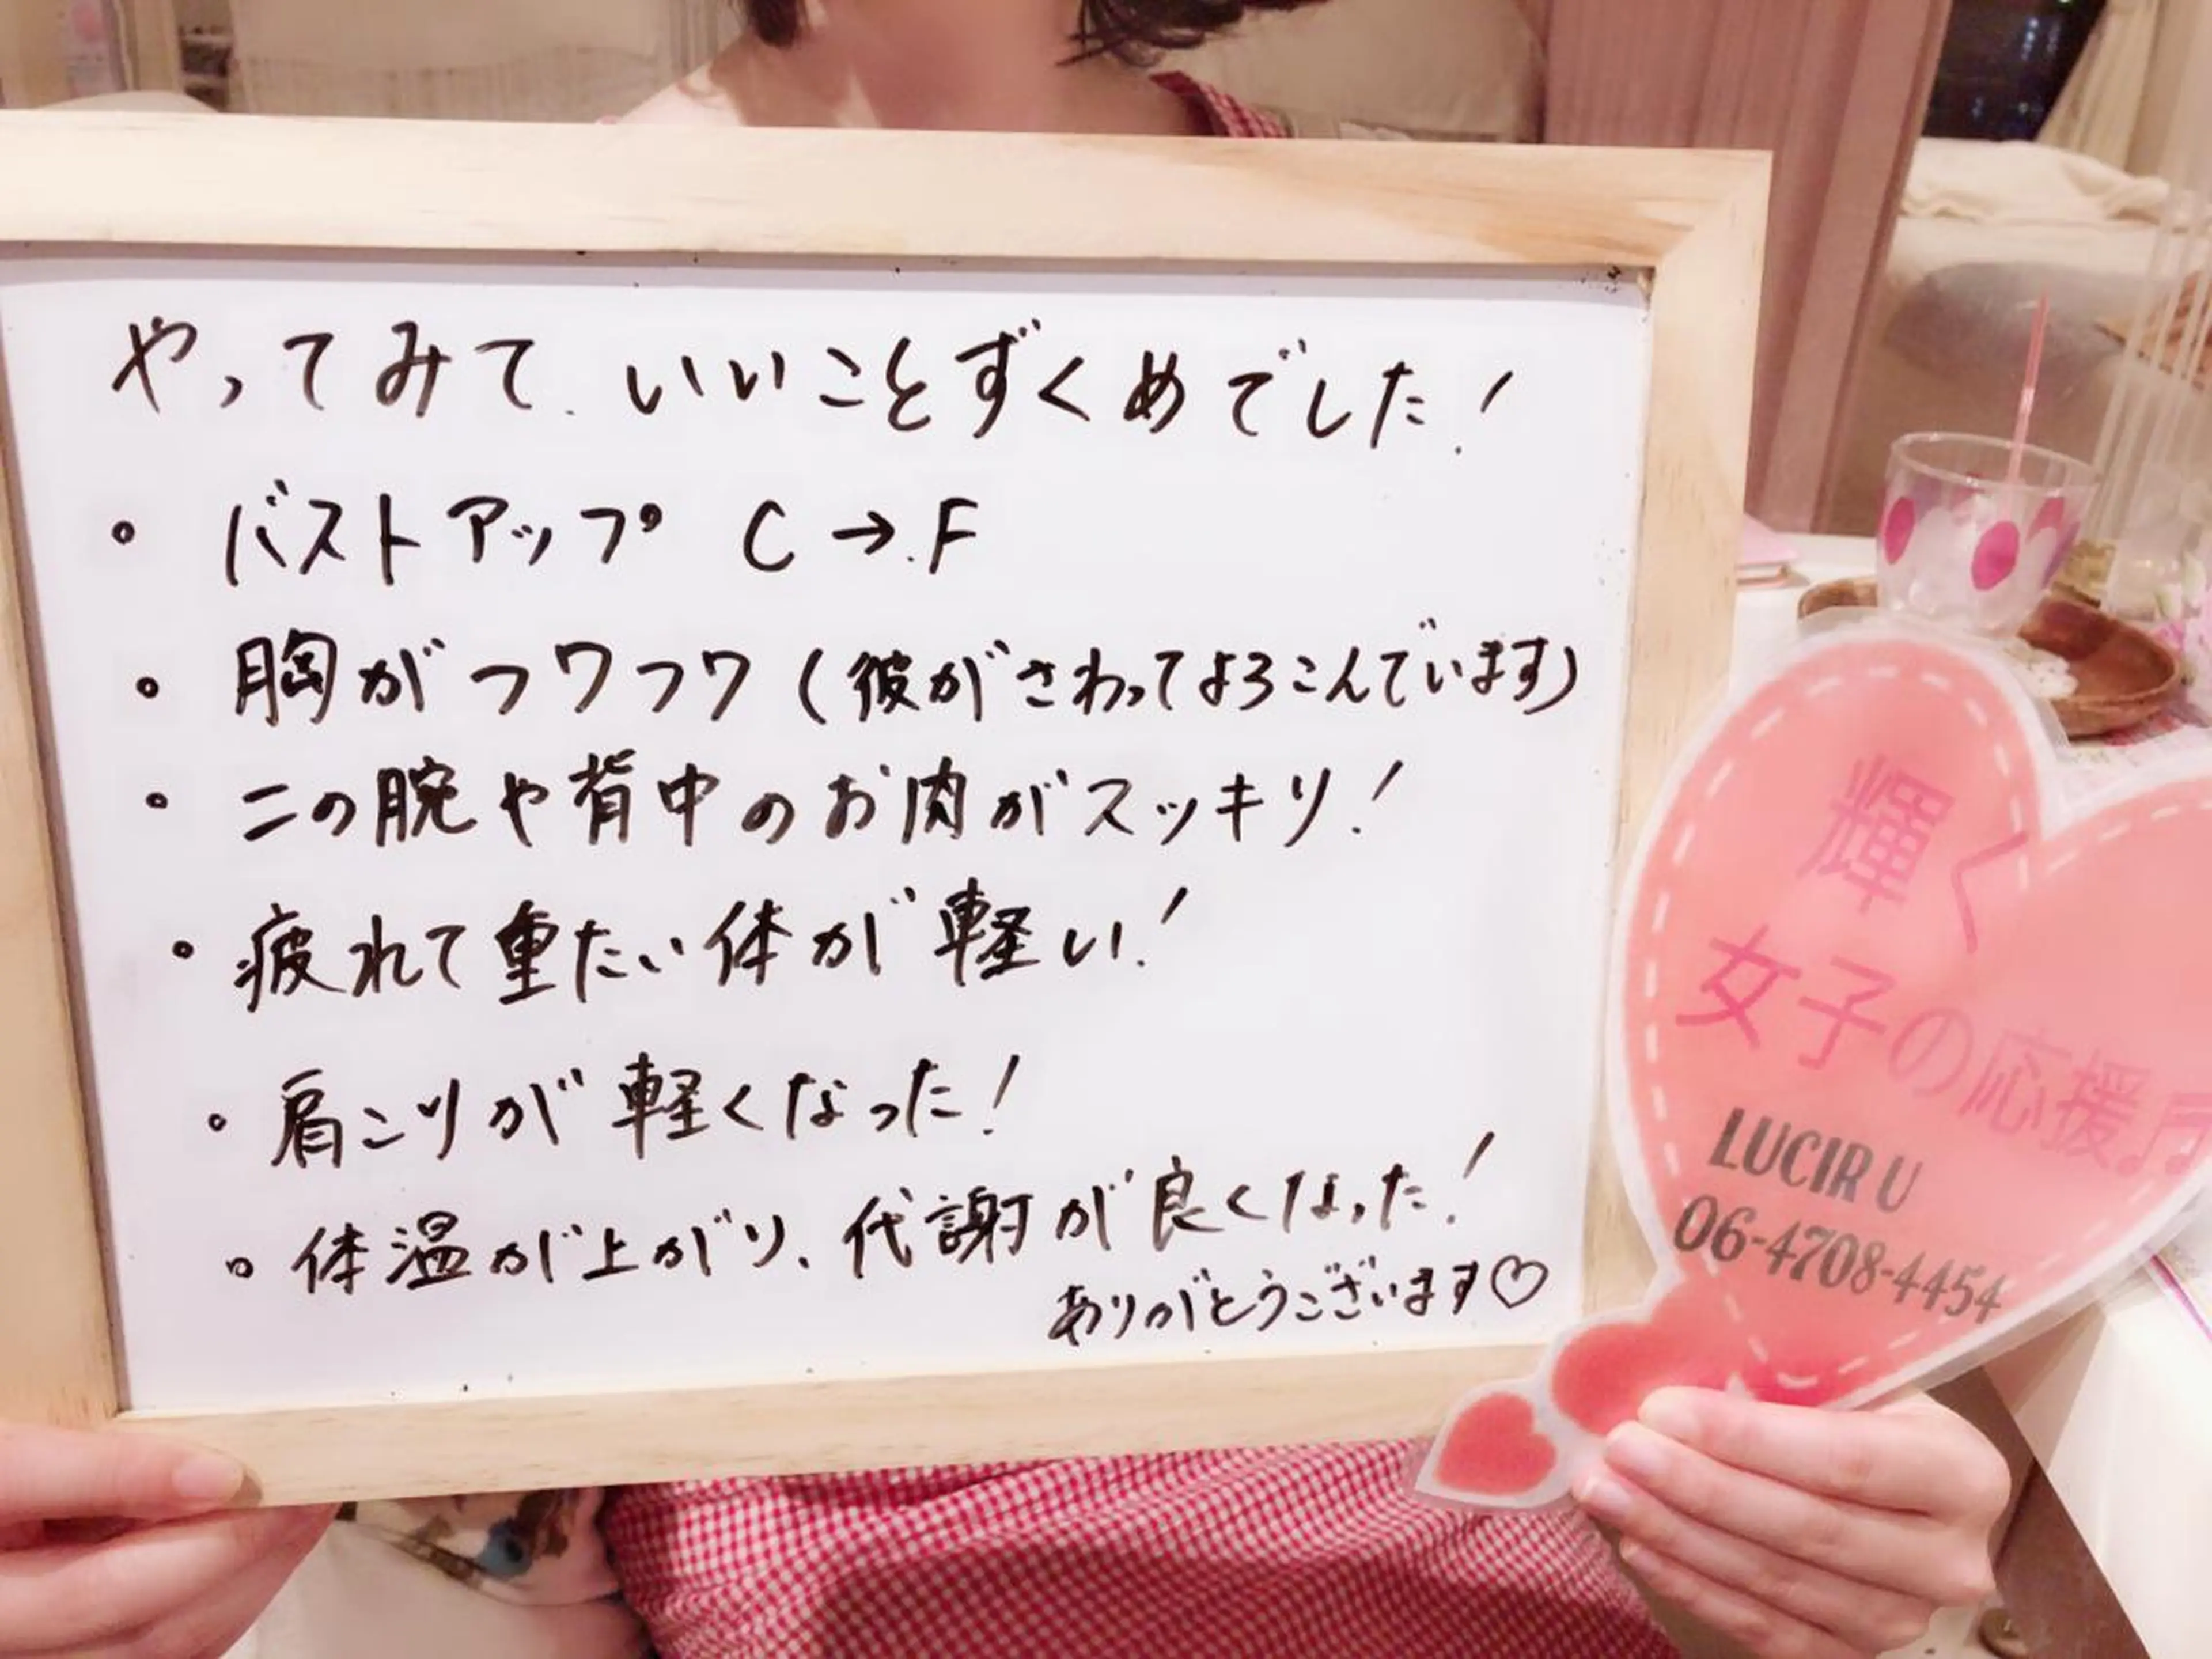 やってみて、いいことずくめでした!
・バストアップ C→F
・胸がフワフワ(彼がさわってよろこんでいます)
・二の腕や背中のお肉がスッキリ!
・疲れて重たい体が軽い!
・肩こりが軽くなった!
・体温が上がり、代謝が良くなった!
ありがとうございます♡
輝く
女子の応援♬
LUCIR U
06-4708-4454